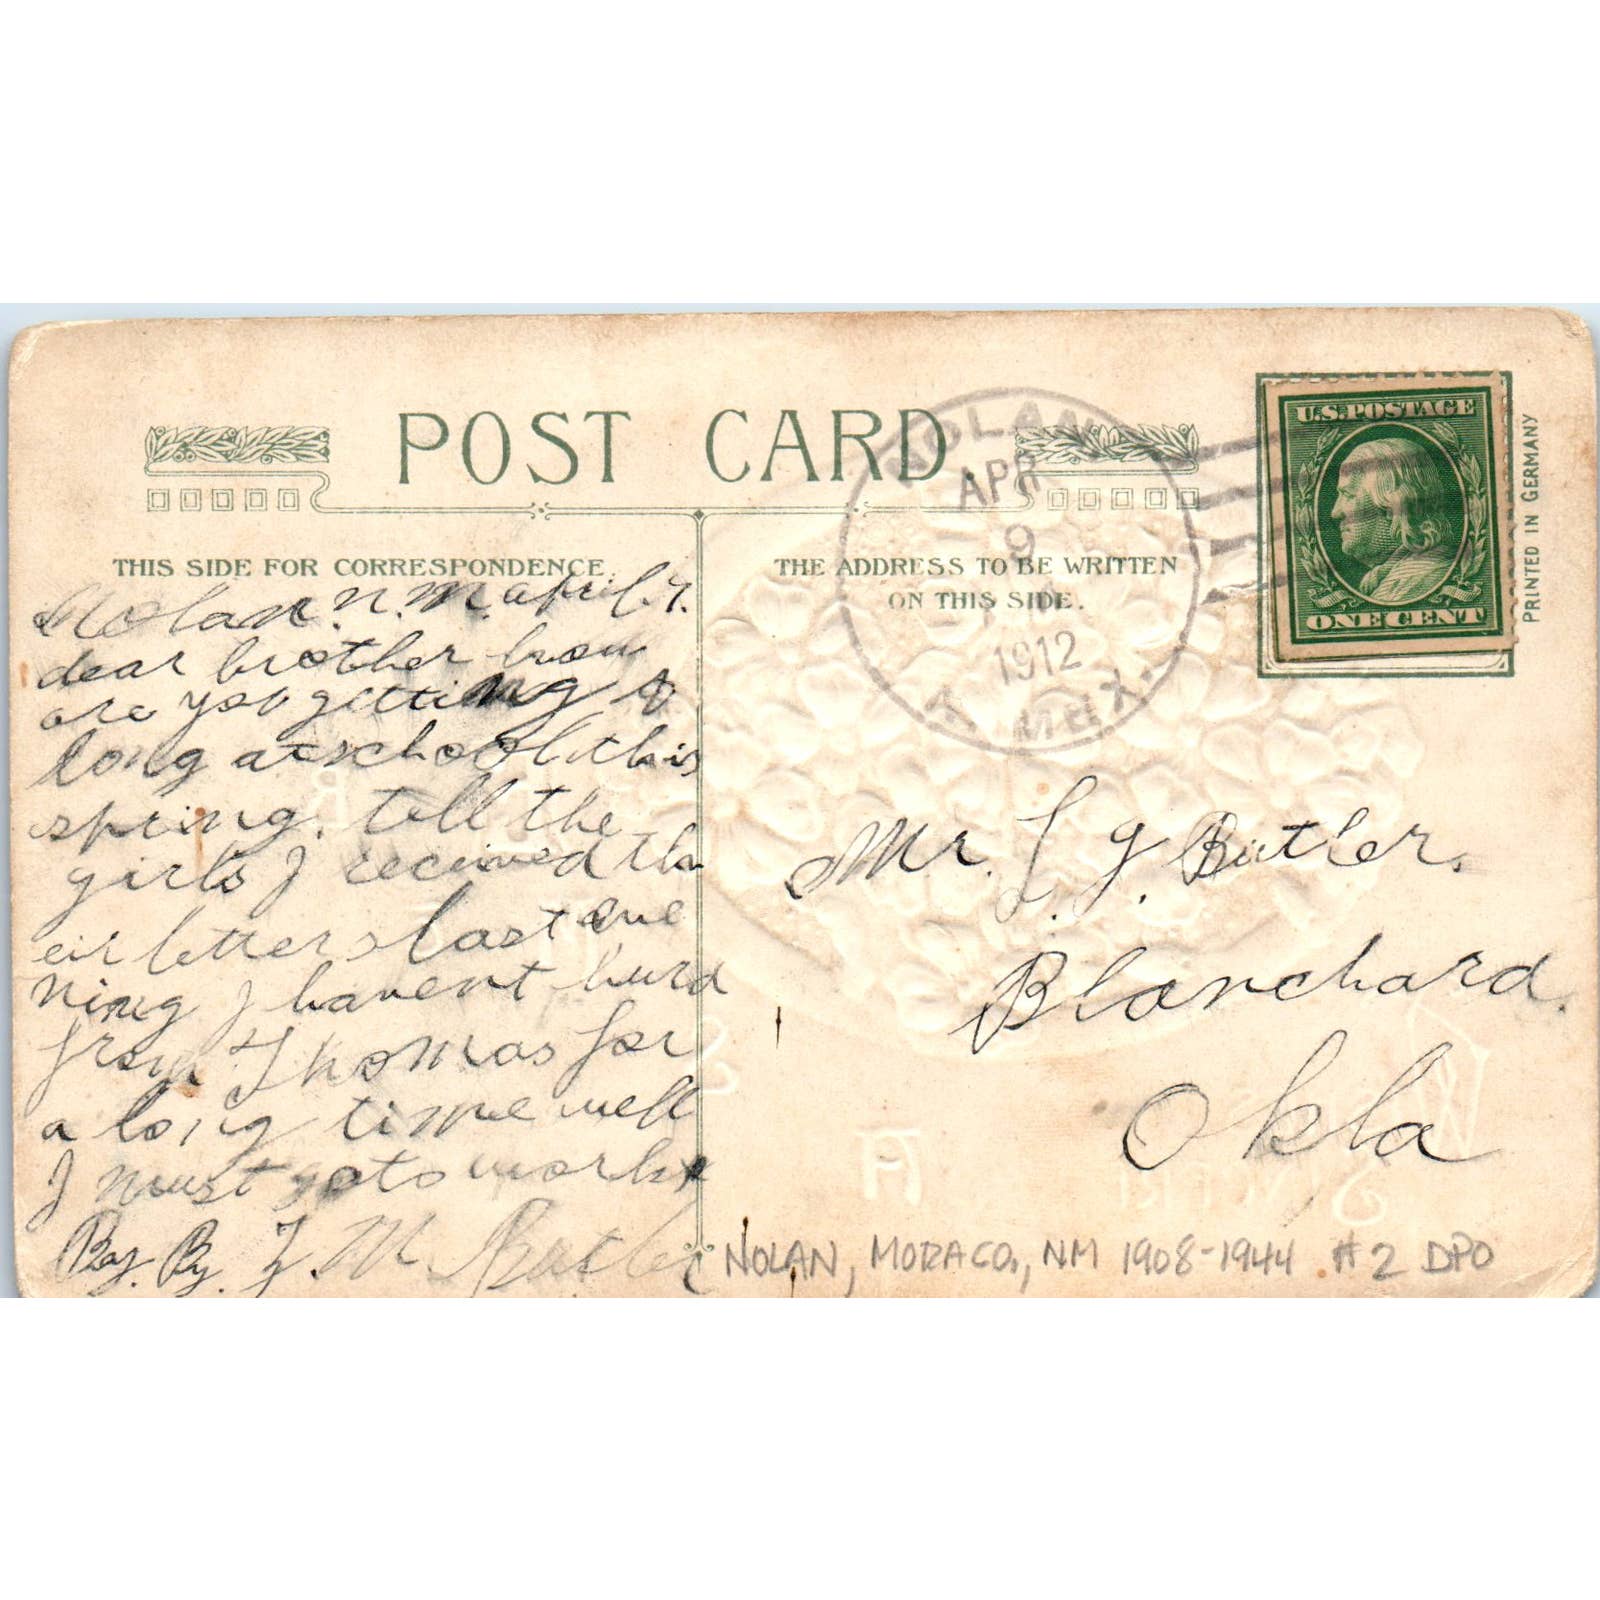 POST CARD
THIS SIDE FOR CORRESPONDENCE.
Nolan. N. M. april. 7.
dear brother how
are you getting A
long at school this
spring. tell the
girls I received th
eir letters last eve
ning I havent hurd
from Thomas for
a long time well
I must go to work
By. By. J. M Butler
THE ADDRESS TO BE WRITTEN
ON THIS SIDE.
NOLAN
APR
9
1912
N. MEX.
U.S. POSTAGE
ONE CENT
PRINTED IN GERMANY
Mr. L. J. Butler.
Blanchard.
Okla
NOLAN, MORA CO., NM 1908-1944 #2 DPO